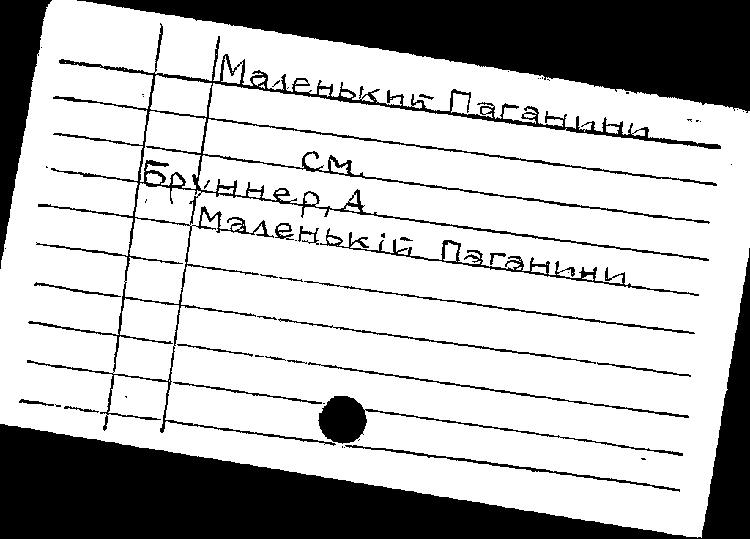 Маленький Паганини
см.
Бруннер, А.
Маленькій Паганини.